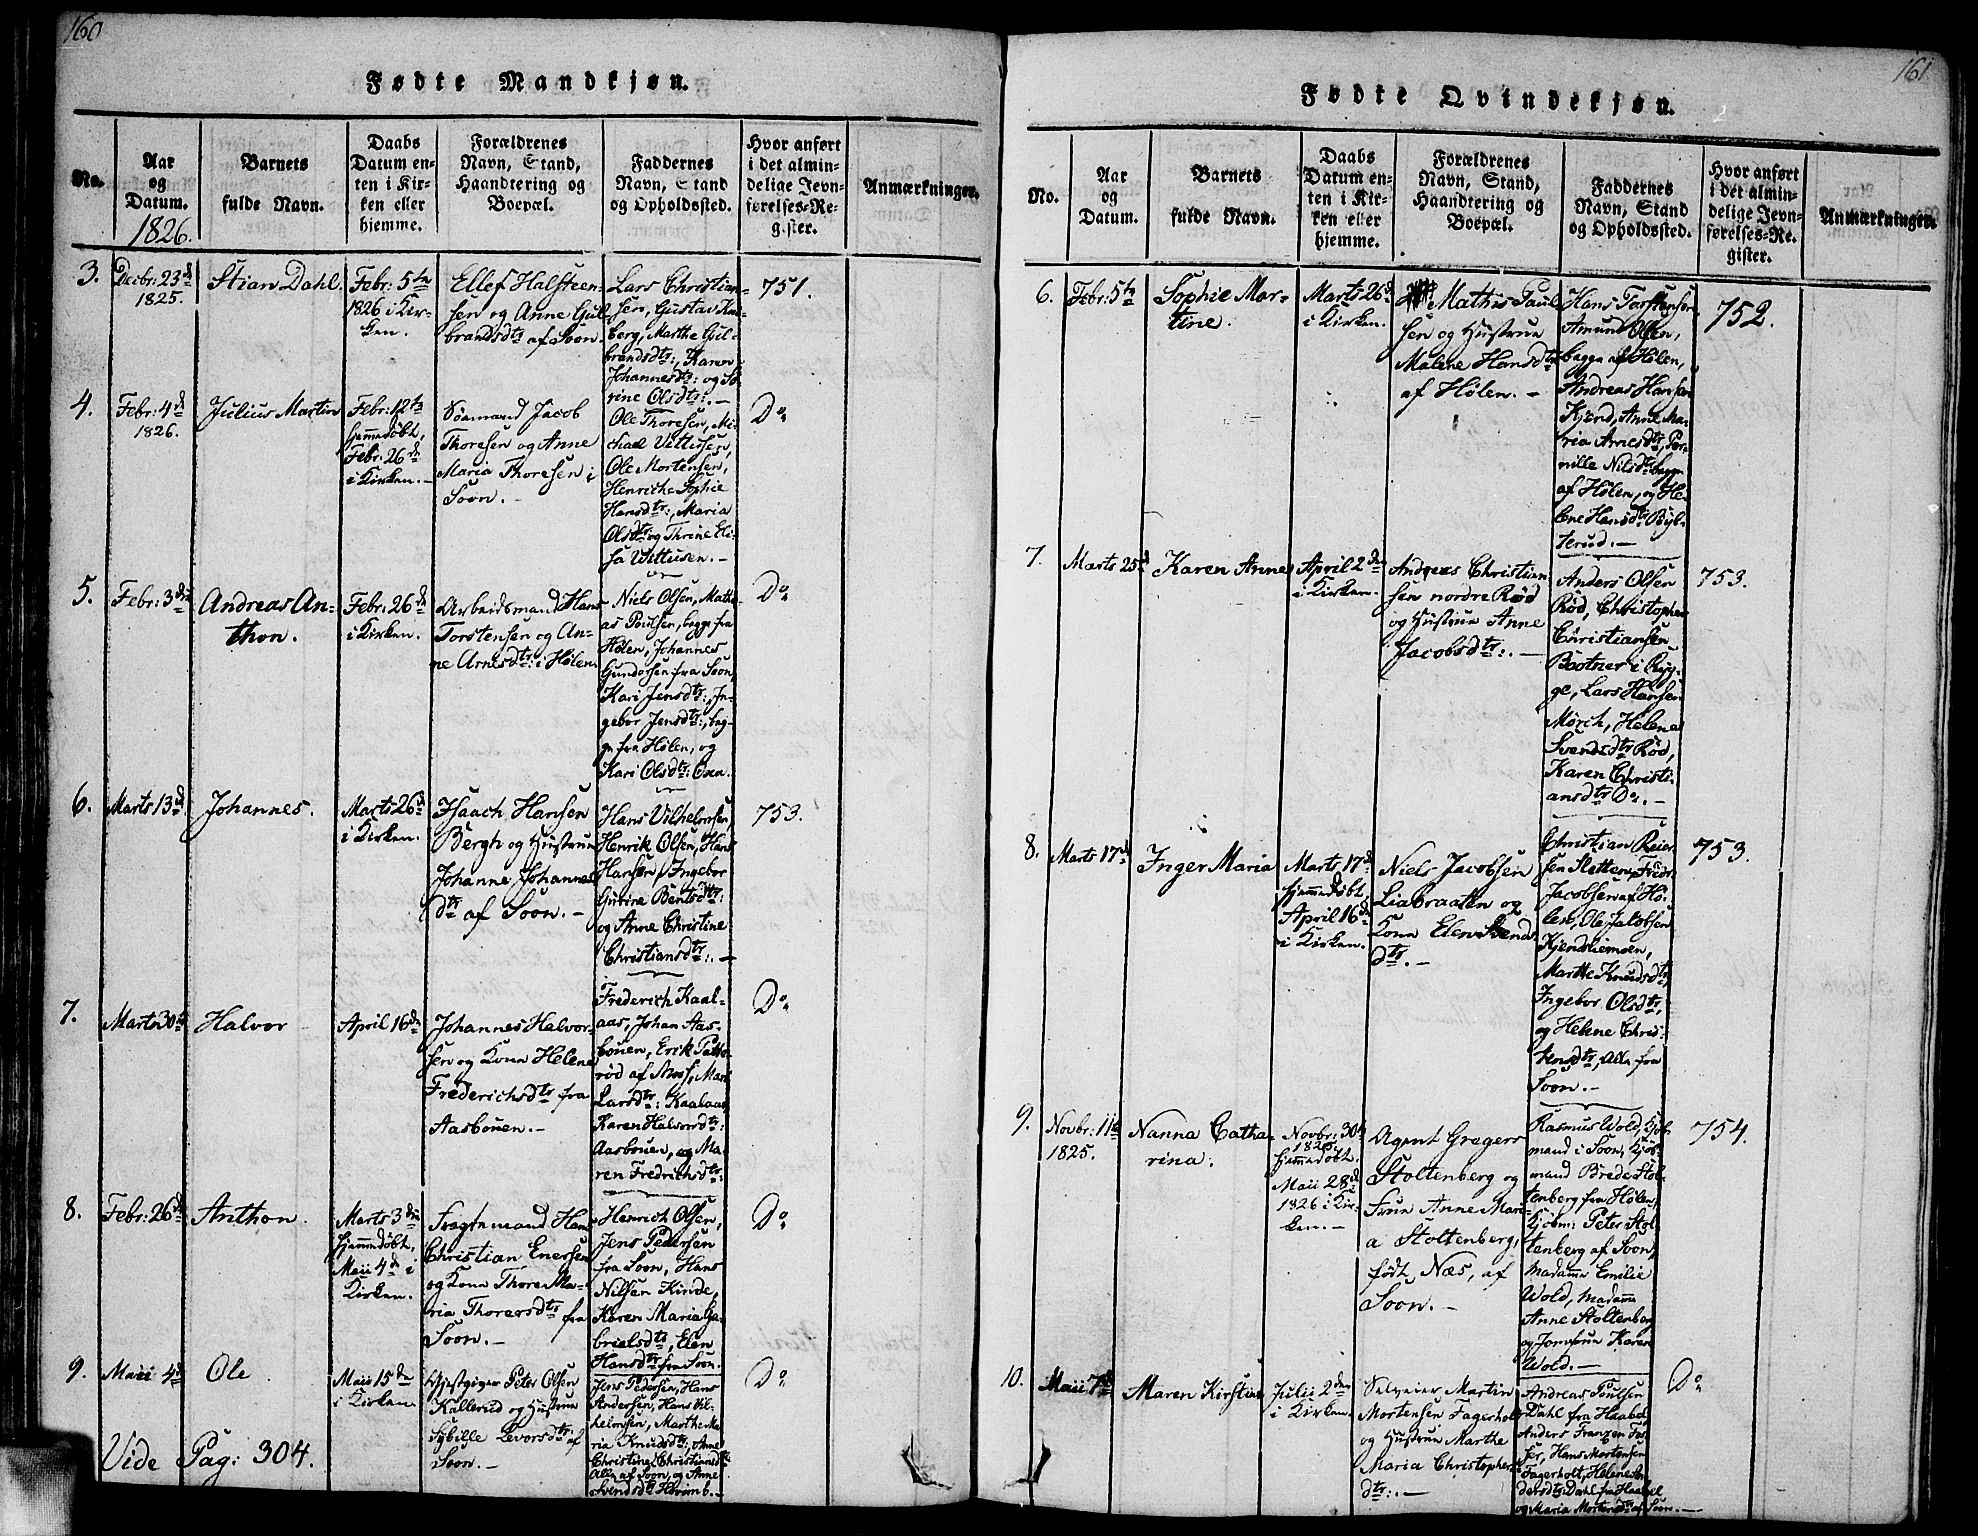 160
Fødte Mandkjøn.
No.
Aar
og
Datum.
1826.
Barnets
fulde Navn.
Daabs
Datum en-
ten i Kir-
ken eller
hjemme.
Forældrenes
Navn, Stand,
Haandtering og
Boepæl.
Faddernes
Navn, Stand
og Opholdssted.
Hvor anført
i det almin-
delige Jevn-
førelses-Re-
gister.
Anmærkninger.
3.
Decbr: 23d
1825.
Stian Dahl.
Febr: 5te
1826 i Kir-
ken.
Ellef Halsteen-
sen og Anne Gul-
brandsdtr af Soon.
Lars Christian-
sen, Gustav
berg, Marthe Gul-
brandsdtr:, Karen
Johannesdtr: og So-
rine Olsdtr:. -
751.
4.
Febr: 4de
1826.
Julius Martin
Febr: 12te
hjemmedøbt,
Febr: 26de
i Kirken. -
Søemand Jacob
Thoresen og Anne
Maria Thoresen i
Soon. -
Ole Thoresen, Mi-
chael
Ole Mortensen,
Henriche Sophie
Hansdtr:, Maria
Olsdtr: og Thrine Eli-
sa
Do
5.
Febr: 3die
Andreas An-
thon.
Febr: 26de
i Kirken.
Arbeidsmand Hans
Torstensen og An-
ne Arnesdtr: i Hølen.
Niels Olsen, Mathi-
as Poulsen, begge fra
Hølen, Johannes
Gundersen fra Soon,
Kari Jensdtr:, In-
gebor Jensdtr:, beg-
ge fra Hølen, og
Kari Olsdtr: Osen.
Do
6.
Marts 13de
Johannes.
Marts 26de
i Kirken.
Isaach Hansen
Bergh og Hustrue
Johanne Johannes-
dtr af Soon. -
Hans Vilhelmsen,
Henrik Olsen, Hans
Hansen, Ingebor
Gurine Bentsdtr:
og Anne Christine
Christiansdtr:. -
753.
7.
Marts 30te
Halvor
April 16de
Johannes Halvor-
sen og Kone Helene
Frederichsdtr fra
Aasbouen. -
Frederich Kaal-
aas, Johan Aas-
bouen, Erik
rød af Moss, Mari
Larsdtr: Kaalaas,
Karen Halvorsdtr:
Aasbouen, og Ma-
ren Fredrichsdtr:
Do
8.
Febr: 26de
Anthon.
Marts 3die
hjemmedøbt,
Maii 4de i
Kirken.
Fragtemand Hans
Christian Enersen
og Kone Thore Ma-
ria Thoresdtr fra
Soon. -
Henrich Olsen,
Jens Pedersen
fra Soon, Hans
Nilsen Kinde,
Karen Maria Ga-
brielsdtr, Elen
Hansdtr fra Soon.
Do
9.
Maii 4de
Ole
Maii 15de
i Kirken.
Gjestgiver Peter Olsen
Kallerud og Hustrue
Sybille Levorsdtr: af
Soon. -
Jens Pedersen, Hans
Andersen, Hans Vil-
helmsen, Marthe Ma-
ria Knudsdtr:, Anne
Christine Christiansdtr
Alle af Soon, og Anne
Svendsdtr
Do
Vide Pag: 304.
161
Fødte Qvindekjøn.
No.
Aar
og
Datum.
Barnets
fulde Navn.
Daabs
Datum en-
ten i Kir-
ken eller
hjemme.
Forældrenes
Navn, Stand,
Haandtering og
Boepæl.
Faddernes
Navn, Stand
og Opholdssted.
Hvor anført
i det almin-
delige Jevn-
førelses-Re-
gister.
Anmærkninger.
6.
Febr: 5te
Sophie Mar-
tine.
Marts 26de
i Kirken.
Mathis Paul-
sen og Hustrue
Malene Hansdtr
af Hølen. -
Hans Torstensen,
Amund Olsen,
begge af Hølen,
Andreas Hansen
Kjend, Anne Ma-
ria Arnesdtr, Per-
nille Nilsdtr begge
af Hølen, og He-
lene Hansdtr Byl-
terud. -
752.
7.
Marts 25de
Karen Anne
April 2den
i Kirken.
Andreas Christian-
sen nordre Rød
og Hustrue Anne
Jacobsdtr:. -
Anders Olsen
Rød, Christopher
Christiansen
Bootner i Ryg-
ge, Lars Hansen
Mörch, Helene
Svendsdtr Rød,
Karen Christi-
ansdtr Do. -
753.
8.
Marts 17de
Inger Maria
Marts 17de
hjemmedøbt
April 16de
i Kirken.
Niels Jacobsen
Liabraaten og
Kone Elen Svends-
dtr. -
Christian Reier-
sen Sletten, Fredr:
Jacobsen af Hø-
len, Ole Jacobsen
Kjendsliemoen,
Marthe Knudsdtr,
Ingebor Olsdtr,
og Helene Chris-
tensdtr, Alle fra
Soon. -
753.
9.
Novbr: 11te
1825.
Nanna Catha-
rina.
Novbr: 30te
1825
hjemmedøbt.
Maii 28de
1826 i Kir-
ken. -
Agent Gregers
Stoltenberg og
Frue Anne Mari-
a Stoltenberg,
født Næs, af
Soon. -
Rasmus Wold, Kjøb-
mand i Soon, Kjøb-
mand Brede Stol-
tenberg fra Hølen,
Kjöbm: Peter Stol-
tenberg af Soon,
Madame Emilie
Wold, Madame
Anne Stoltenberg
og Jomfrue Karen
Wold. -
754.
10.
Maii 7de
Maren Kirstine
Julii 2den
i Kirken.
Selveier Martin
Mortensen Fagerholt
og Hustrue Marthe
Maria Christophers-
dtr:. -
Andreas Poulsen
Dahl fra Haabøl,
Anders Franzen Fos-
ser, Hans Mortensen
Fagerholt, Helene An-
dersdtr Dahl fra Haabøl
og Maria Mortensdtr af Soon. -
Do